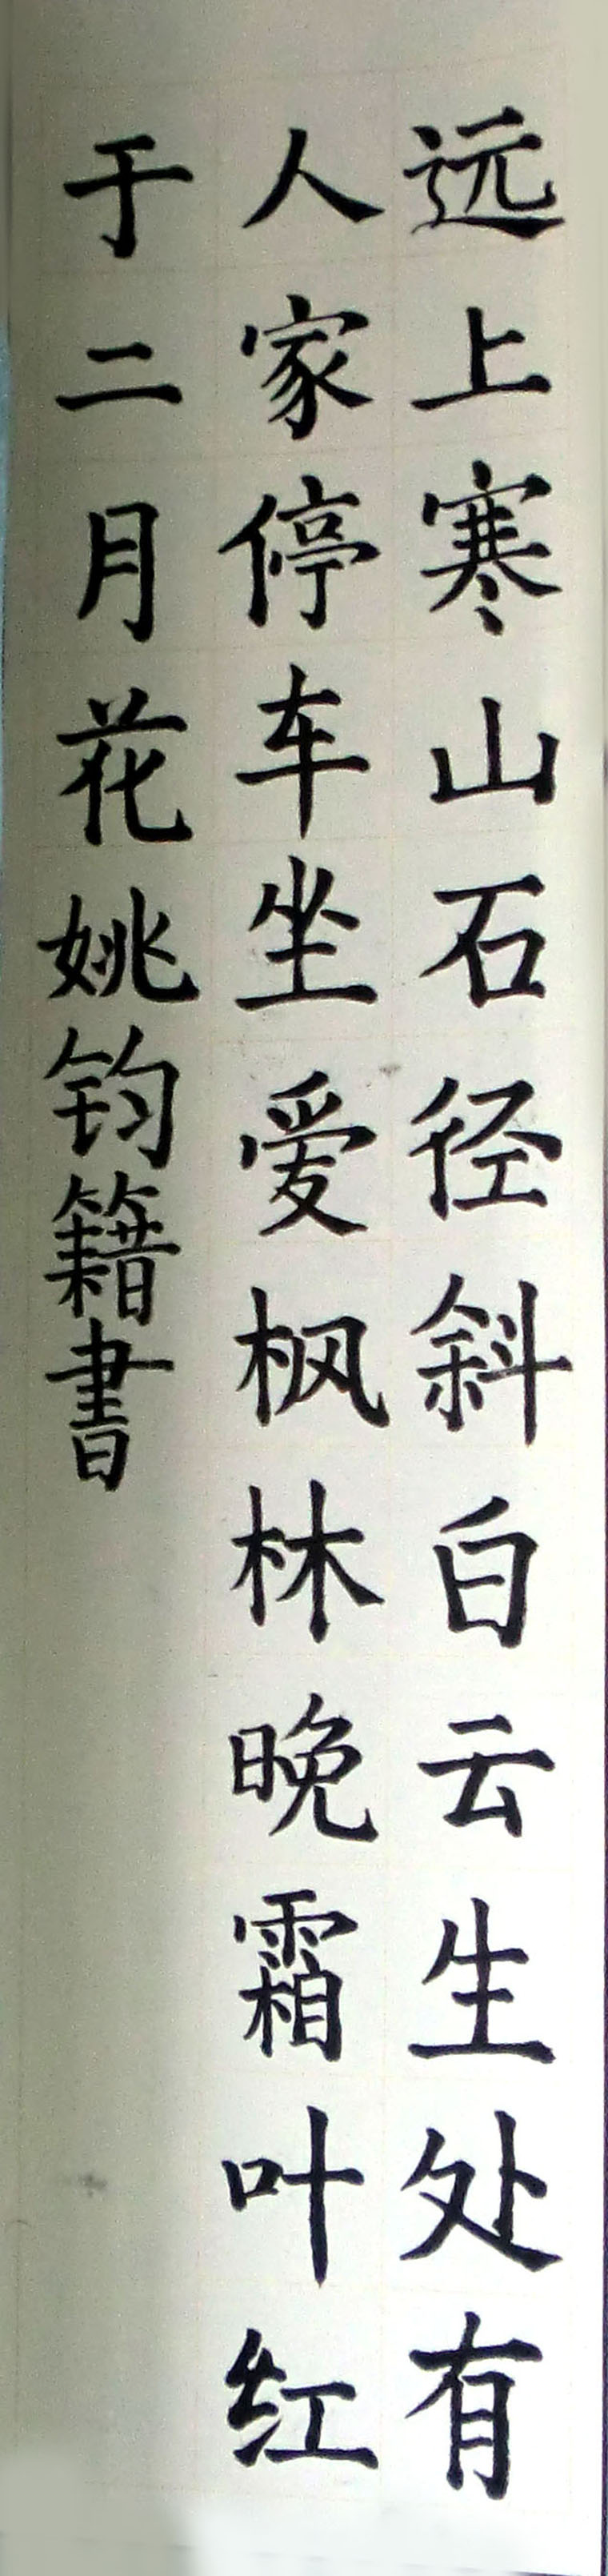 远上寒山石径斜白云生处有
人家停车坐爱枫林晚霜叶红
于二月花姚钧籍書